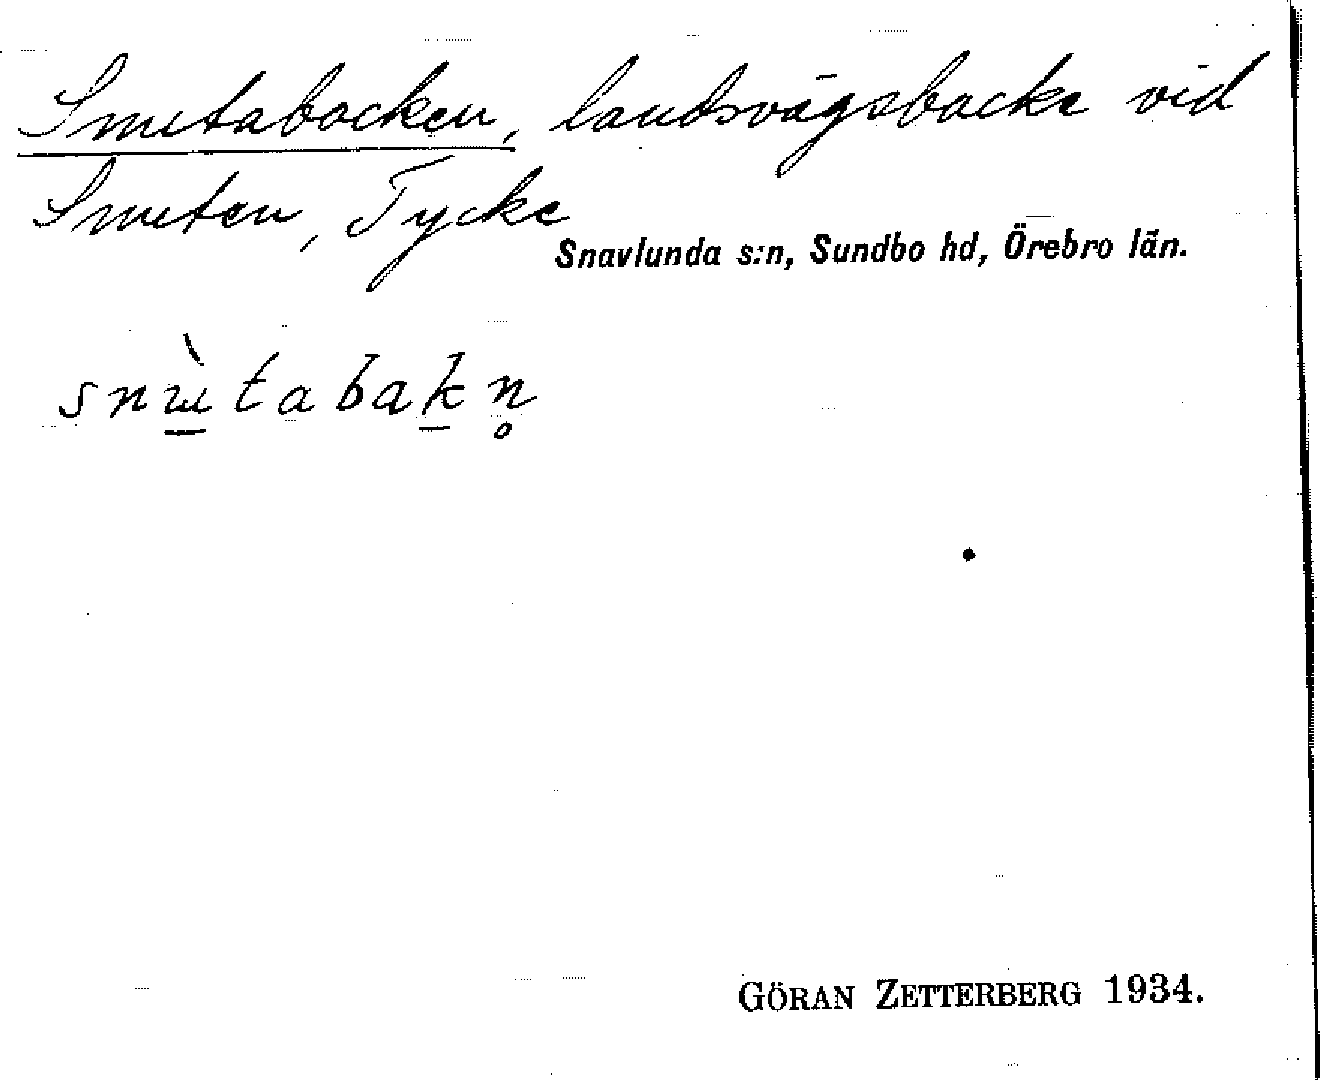 Snutabacken, landsvägsbacke vid
Snuten, Tycke
Snavlunda s:n, Sundbo hd, Örebro län.
snɯ̲̀tabak̲n̥
GÖRAN ZETTERBERG 1934.